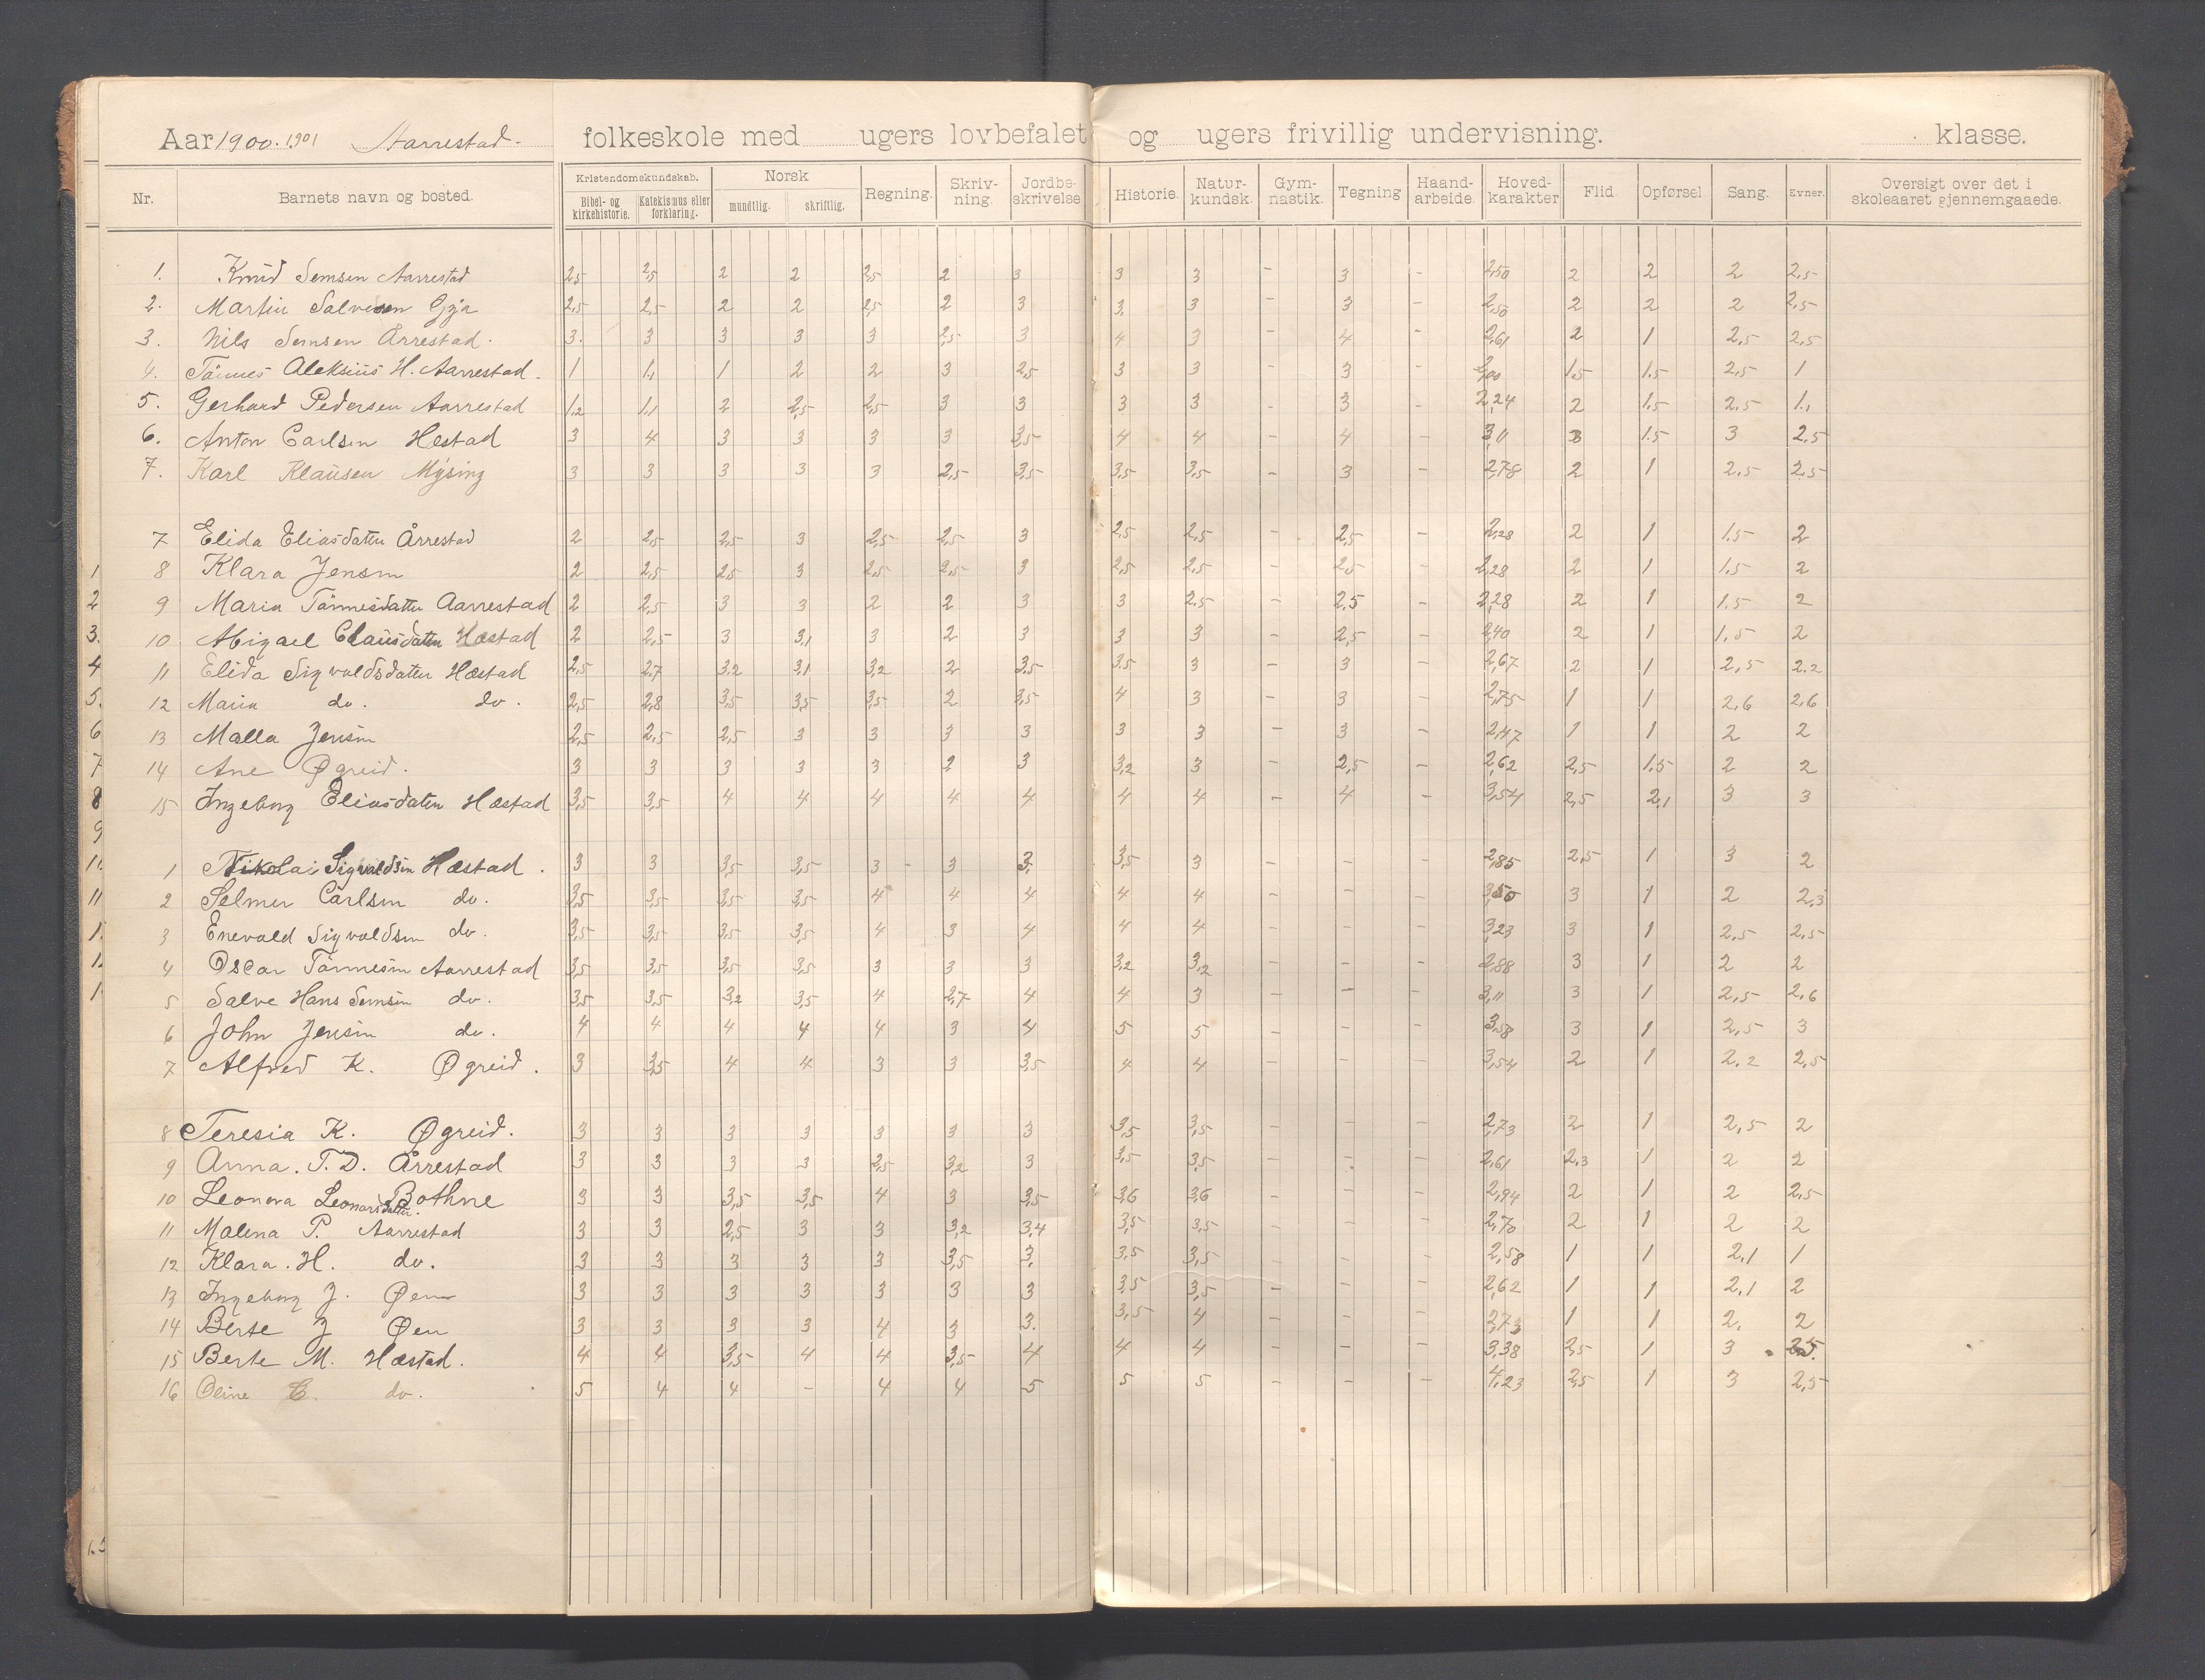 Aar 1900. 1901 Aarrestad. folkeskole med ugers lovbefalet og ugers frivillig undervisning. klasse.
Nr. Barnets navn og bosted. Kristendomskundskab. Bibel- og kirkehistorie. Katekismus eller forklaring. Norsk mundtlig. skriftlig. Regning. Skriv-ning. Jordbe-skrivelse Historie. Natur-kundsk. Gym-nastik. Tegning Haand-arbeide. Hoved-karakter Flid. Opførsel Sang. Evner. Oversigt over det i skoleaaret gjennemgaaede.
1. Knud Semsen Aarrestad 2,5 2,5 2 2 2,5 2 3 3 3 - 3 - 2,50 2 2 2 2,5
2. Martin Salvesen Gya 2,5 2,5 2 2 2,5 2 3 3. 3 - 3 - 2,50 2 2 2 2,5
3. Nils Semsen Årrestad. 3. 3 3 3 3 2,5 3 4 3 - 4 - 2,61 2 1 2,5 2,5
4. Tønnes Aleksius H. Aarrestad. 1 1, 1 2 2 3 2,5 3 3 - 3 - 2,00 1.5 1.5 2,5 1
5. Gerhard Pedersen Aarrestad 1,2 1,1 2 2,5 2,5 3 3 3 3 - 3 - 2,24 2 1.5 2.5 1.,
6. Anton Carlsen Hestad 3 4 3 3 3 3 3,5 4 4 - 4 - 3,11 3 1.5 3 2.5
7. Karl Klausen Mysing 3 3 3 3 3 2,5 3,5 3,5 3,5 - 3 - 2,78 2 1 2.5 2.5
7 Elida Eliasdatter Årrestad 2 2,5 2,5 3 2,5 2,5 3 2,5 2,5 - 2,5 - 2,28 2 1 1.5 2
1 8 Klara Jensen 2 2,5 2,5 3 2,5 2,5 3 2,5 2,5 - 2,5 - 2,28 2 1 1.5 2
2 9 Maria Tønnesdatter Aarrestad 2 2,5 3 3 2 2 3 3 2,5 - 2,5 - 2,28 2 1 1.5 2
3. 10 Abigael Clausdatter Hæstad 2 2,5 3 3,1 3 2 3 3 3 - 2,5 - 2,40 2 1 1,5 2
4 11 Elida Sigvaldsdatter Hæstad 2,5 2,7 3,2 3,1 3,2 2 3,5 3,5 3 - 3 - 2,67 2 1 2,5 2.2
5. 12 Maria do. do. 2,5 2,8 3,5 3,5 3,5 2 3,5 4 3 - 3 - 2,75 1 1 2,6 2,6
6 13 Malla Jensen 2,5 2,5 2,5 3 3 3 3 3 3 - 3 - 2,47 1 1 2 2
7 14 Ane Øgreid. 3 3 3 3 3 2 3 3,2 3 - 2,5 - 2,62 2,5 1.5 2 2
8 15 Ingeborg Eliasdatter Hæstad 3,5 3,5 4 4 4 4 4 4 4 - 4 - 3,54 2,5 2,1 3 3
9
1. 1 Nikolai Sigvaldsen Hæstad. 3 3 3,5 3,5 3 - 3 3. 3,5 3 - - - 2,85 2,5 1 3 2
11 2 Selmer Carlsen do. 3,5 3,5 3,5 3,5 4 4 4 4 4 - - - 3,50 3 1 2 2,3
1. 3 Enevald Sigvaldsen do. 3,5 3,5 3,5 3,5 4 3 4 4 4 - - - 3,23 3 1 2,5 2,5
1. 4 Oscar Tønnesen Aarrestad 3,5 3,5 3,5 3,5 3 3 3 3,2 3,2 - - - 2,88 3 1 2 2
1. 5 Salve Hans Semsen do. 3,5 3,5 3,2 3,5 4 2,7 4 4 3 - - - 3,11 3 1 2,5 2,6
6 John Jensen do. 4 4 4 4 4 3 4 5 5 - - - 3,58 3 1 2,5 3
7 Alfred K. Øgreid. 3 3,5 4 4 3 3 3,5 4 4 - - - 3,54 2 1 2.2 2,5
8 Teresia K. Øgreid. 3 3 3 3 3 3 3 3,5 3,5 - - - 2,73 2 1 2,5 2
9 Anna. T. D. Årrestad 3 3 3 3 2,5 3,2 3 3,5 3,5 - - - 2,61 2.3 1 2 2
10 Leonora Leonardsdatter. Bothne 3 3 3,5 3,5 4 3 3,5 3,6 3,6 - - - 2,94 2 1 2 2,5
11 Malena P. Aarrestad 3 3 2,5 3 3 3,2 3,4 3,5 3,5 - - - 2,70 2 1 2 2
12 Klara. H. do. 3 3 3 3 3 3,5 3. 3,5 3,5 - - - 2,58 1 1 2.1 1
13 Ingeborg J. Øen 3 3 3 3 3 3 3 3,5 3,5 - - - 2,62 1 1 2.1 2
14 Berte J Øen 3 3 3 3 4 3 3. 3,5 4 - - - 2,73 1 1 2. 2
15 Berte M. Hæstad. 4 4 3,5 4 4 3,5 4 4 4 - - - 3,38 2,5 1 3 2,5.
16 Oline C. do. 5 4 4 - 4 4 5 5 5 - - - 4,23 2,5 1 3 2,5